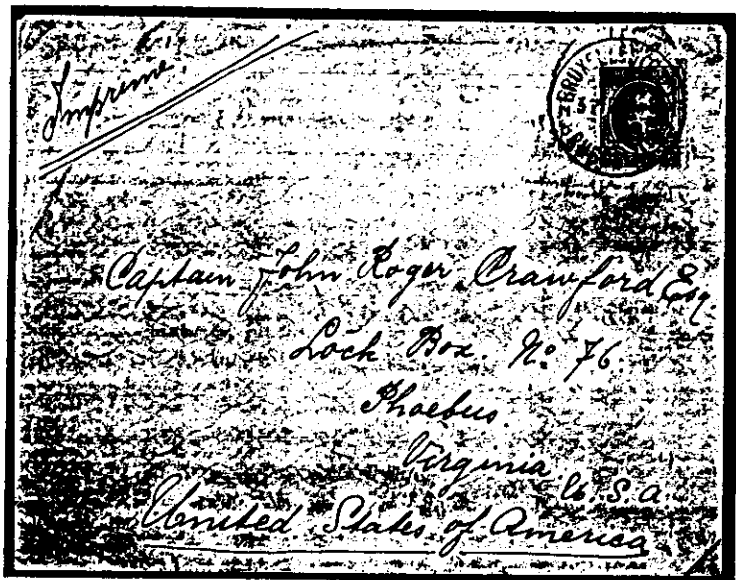 Imprime
Captain John Roger Crawford Esq
Lock Box. No 76.
Phoebus.
Virginia U.S.A.
United States of America